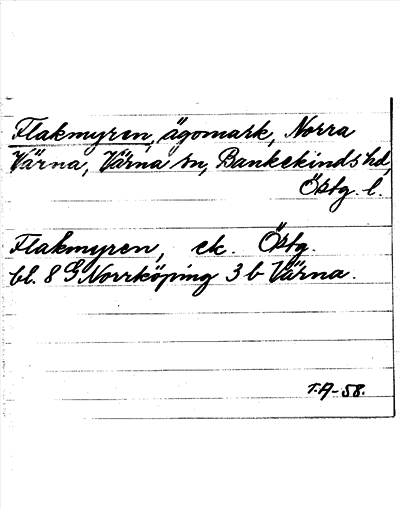 Flakmyren, ägomark, Norra
Värna, Värna sn, Bankekinds hd,
Östg. l.
Flakmyren, ek. Östg.
bl. 8 G Norrköping 3 b Värna.
T.A-58.